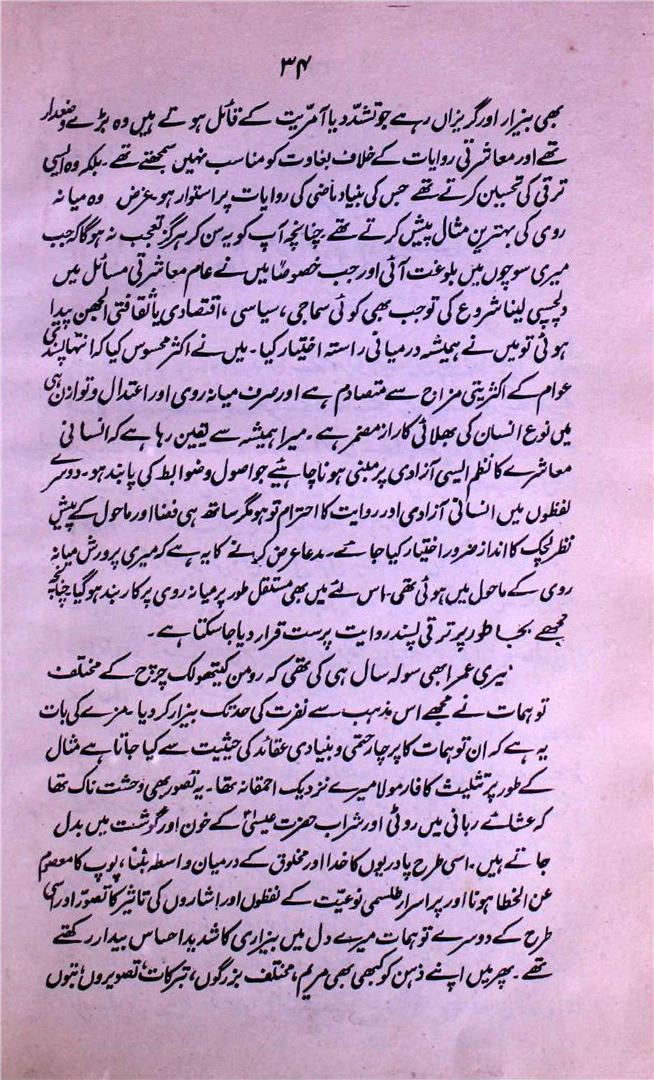 ۳۴
بھی بیزار اور گریزاں رہے جو تشدّد یا آمریت کے قائل ہوتے ہیں وہ بڑے وضعدار
تھے اور معاشرتی روایات کے خلاف بغاوت کو مناسب نہیں سمجھتے تھے۔ بلکہ وہ ایسی
ترقی کی تحسین کرتے تھے جس کی بنیاد ماضی کی روایات پر استوار ہو۔ غرض وہ میانہ
روی کی بہترین مثال پیش کرتے تھے چنانچہ آپ کو یہ سن کر ہرگز تعجب نہ ہو گا کہ جب
میری سوچوں میں بلوغت آئی اور جب خصوصاً میں نے عام معاشرتی مسائل میں
دلچسپی لینا شروع کی تو جب بھی کوئی سماجی، سیاسی، اقتصادی یا ثقافتی الجھن پیدا
ہوئی تو میں نے ہمیشہ درمیانی راستہ اختیار کیا۔ میں نے اکثر محسوس کیا کہ انتہا پسندی
عوام کے اکثریتی مزاج سے متصادم ہے اور صرف میانہ روی اور اعتدال و توازن ہی
میں نوع انسان کی بھلائی کا راز مضمر ہے۔ میرا ہمیشہ سے یقین رہا ہے کہ انسانی
معاشرے کا نظم ایسی آزادی پر مبنی ہونا چاہئیے جو اصول و ضوابط کی پابند ہو۔ دوسرے
لفظوں میں انسانی آزادی اور روایت کا احترام تو ہو مگر ساتھ ہی فضا اور ماحول کے پیش
نظر لچک کا انداز ضرور اختیار کیا جائے۔ مدعا عرض کرنے کا یہ ہے کہ میری پرورش میانہ
روی کے ماحول میں ہوئی تھی۔ اس لئے میں بھی مستقل طور پر میانہ روی پر کاربند ہو گیا چنانچہ
مجھے بجا طور پر ترقی پسند روایت پرست قرار دیا جا سکتا ہے۔
میری عمر ابھی سولہ سال ہی کی تھی کہ رومن کیتھولک چرچ کے مختلف
توہمات نے مجھے اس مذہب سے نفرت کی حد تک بیزار کر دیا۔ مزے کی بات
یہ ہے کہ ان توہمات کا پرچار حتمی و بنیادی عقائد کی حیثیت سے کیا جاتا ہے مثال
کے طور پر تثلیث کا فارمولا میرے نزدیک احمقانہ تھا۔ یہ تصور بھی وحشت ناک تھا
کہ عشائے ربانی میں روٹی اور شراب حضرت عیسیٰؑ کے خون اور گوشت میں بدل
جاتے ہیں۔ اسی طرح پادریوں کا خدا اور مخلوق کے درمیان واسطہ بننا، پوپ کا معصوم
عن الخطا ہونا اور پراسرار طلسمی نوعیّت کے لفظوں اور اشاروں کی تاثیر کا تصوّر اور اسی
طرح کے دوسرے توہمات میرے دل میں بیزاری کا شدید احساس بیدار رکھتے
تھے۔ پھر میں اپنے ذہن کو کبھی بھی مریم، مختلف بزرگوں، تبرکات، تصویروں، بتوں